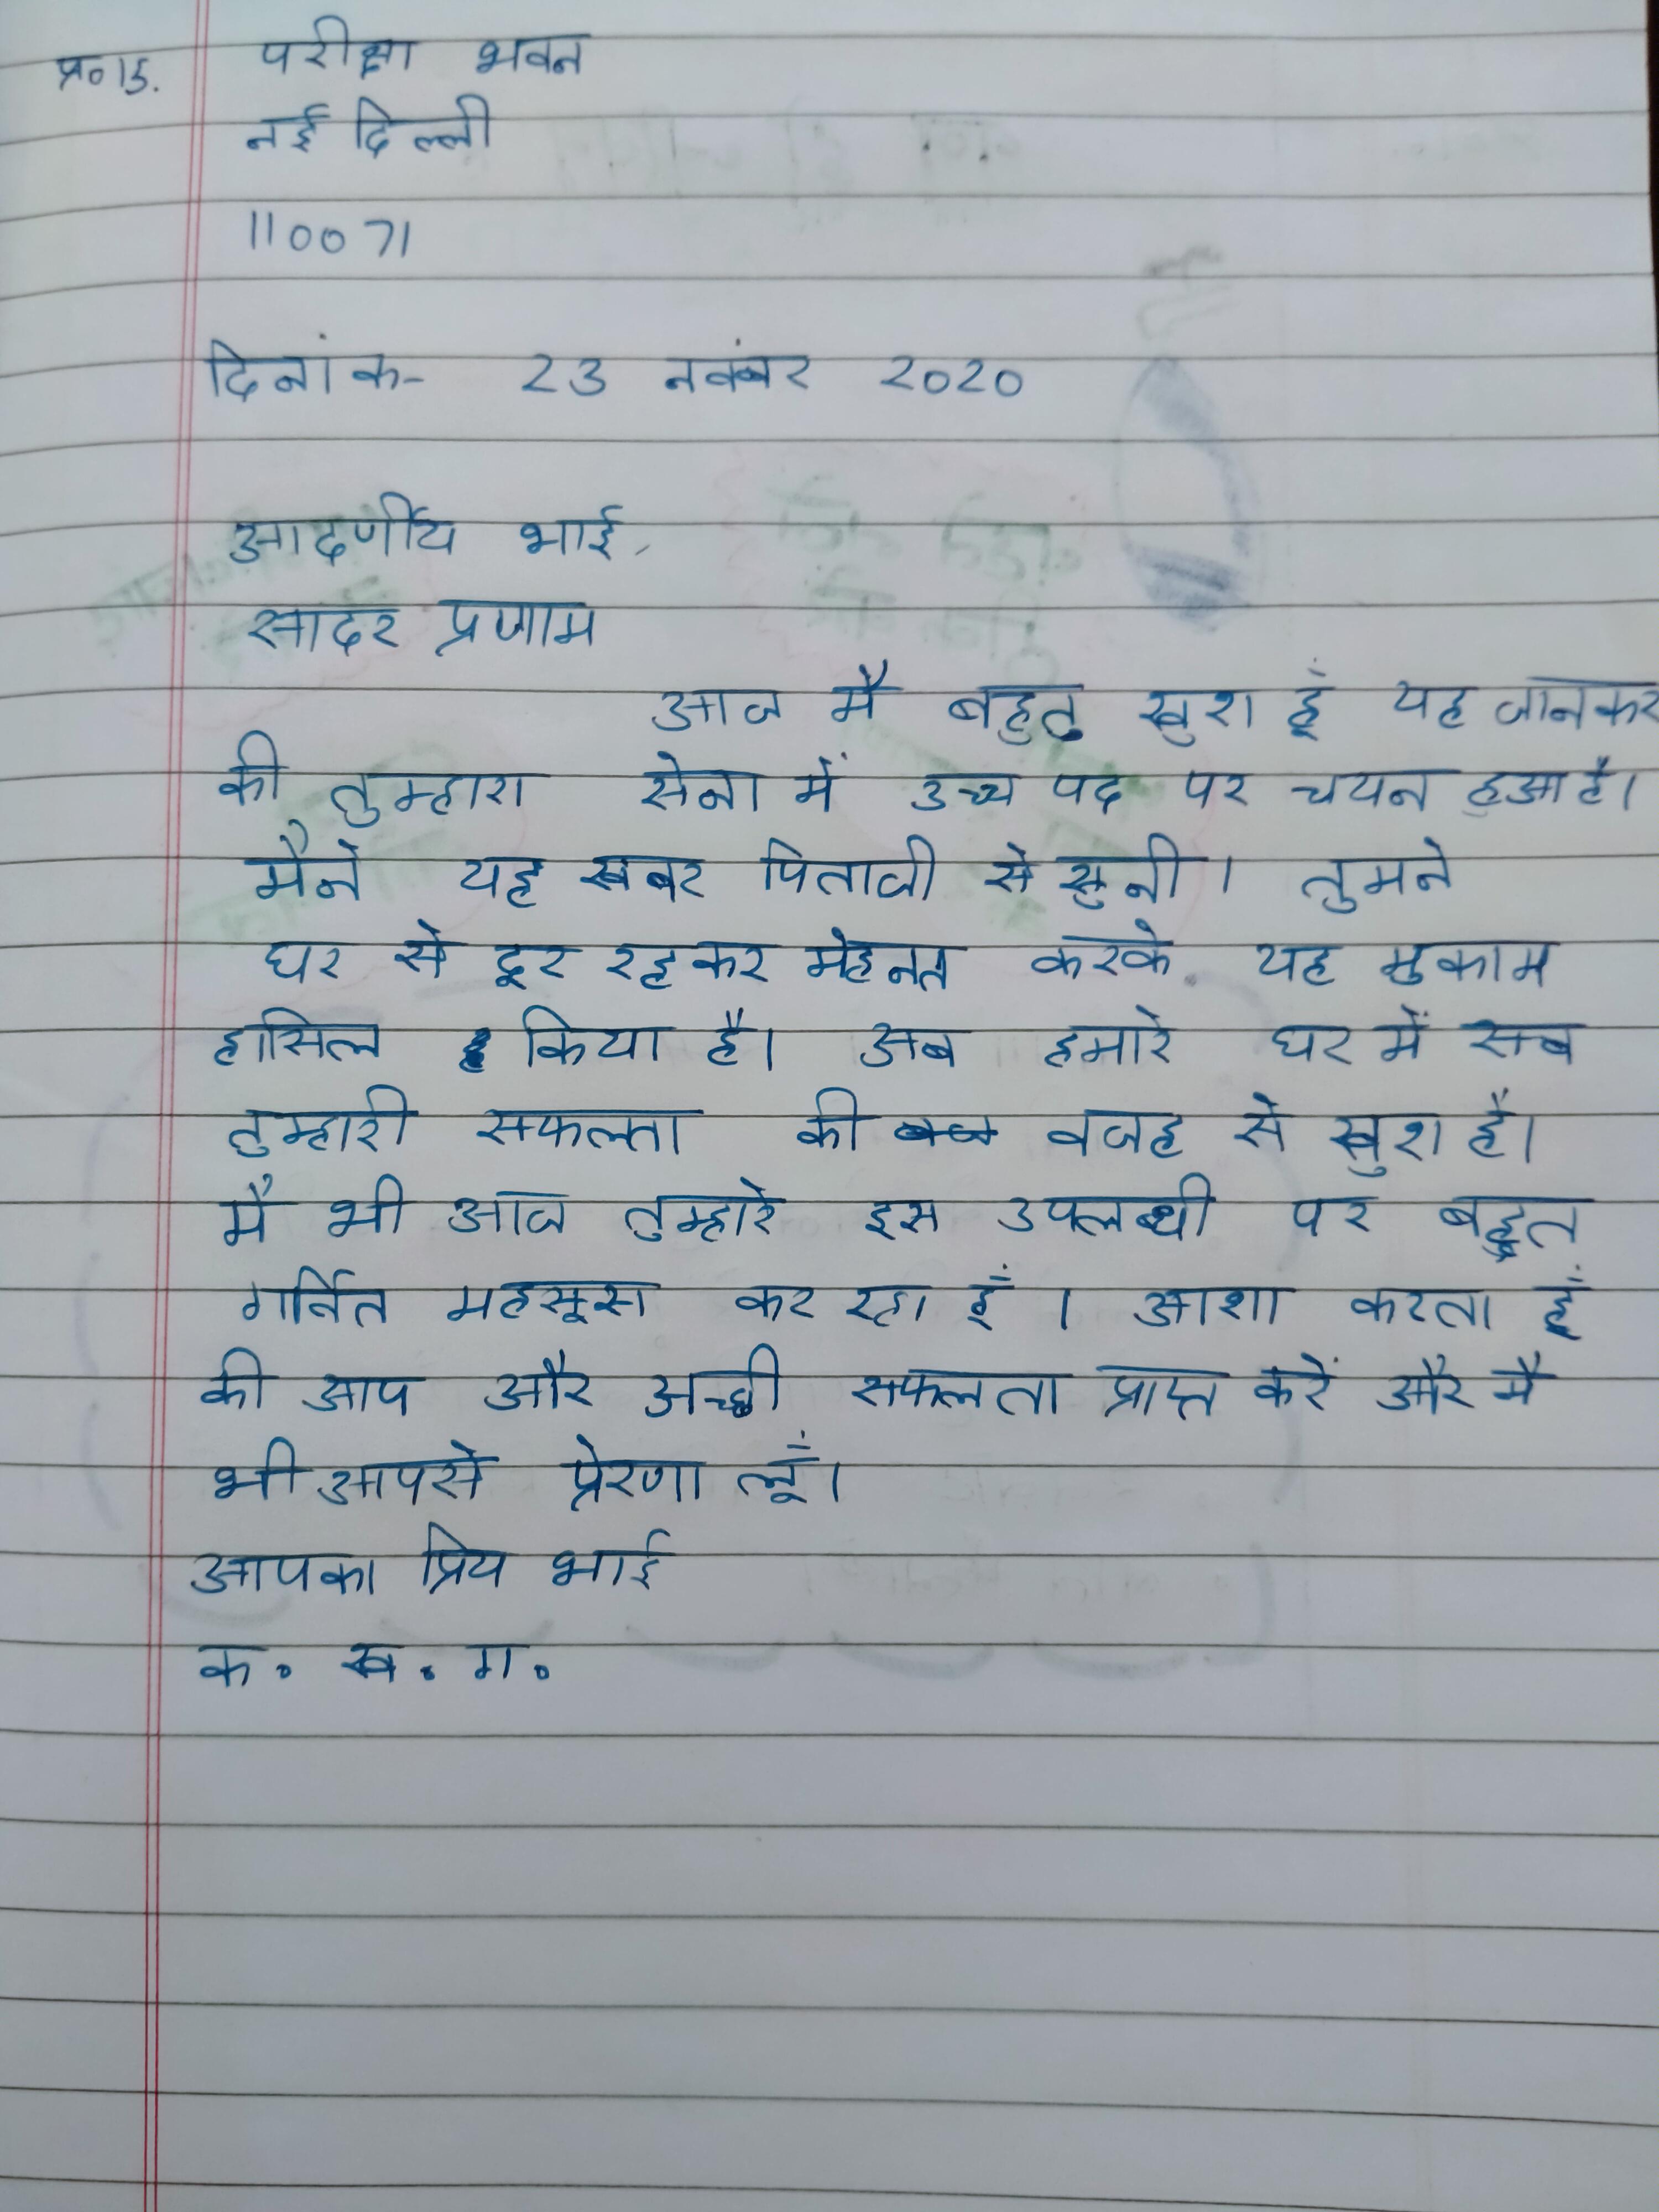 प्र०15. परीक्षा भवन
नई दिल्ली
110071
दिनांक- 23 नवंबर 2020
आदर्णीय भाई,
सादर प्रणाम
आज मै बहुत खुश हूँ यह जानकर
की तुम्हारा सेना में उच्च पद पर चयन हुआ है।
मैने यह खबर पिताजी से सुनी। तुमने
घर से दूर रहकर मेहनत करके यह मुकाम
हासिल किया है। अब हमारे घर में सब
तुम्हारी सफलता की वजह से खुश हैं।
मै भी आज तुम्हारे इस उपलब्धी पर बहुत
गर्वित महसूस कर रहा हूँ। आशा करता हूँ
की आप और अच्छी सफलता प्राप्त करें और मै
भी आपसे प्रेरणा लूँ।
आपका प्रिय भाई
क. ख. ग.